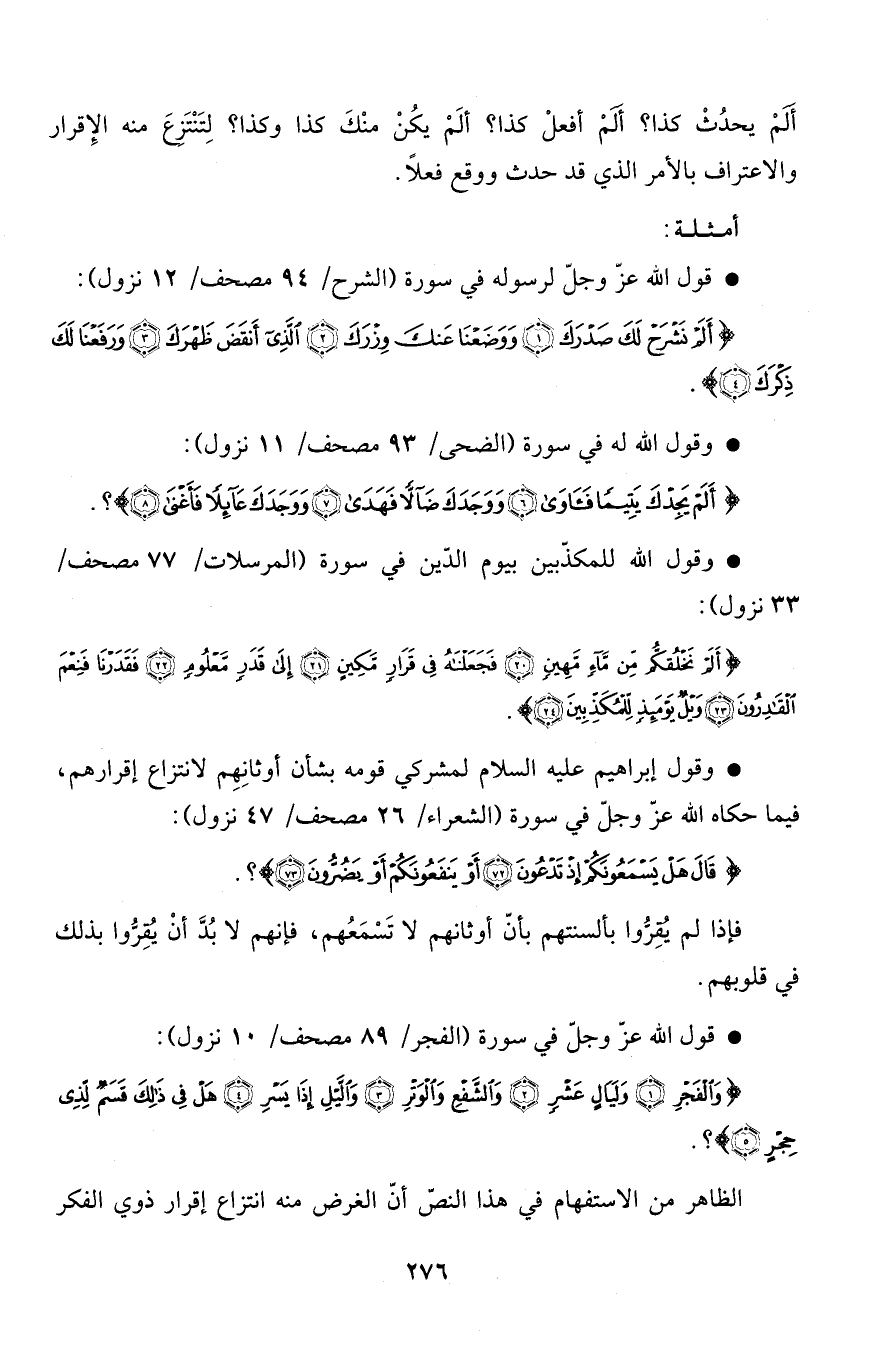 أَلَمْ يحدُثْ كذا؟ أَلَمْ أفعلْ كذا؟ ألَمْ يكُنْ منْكَ كذا وكذا؟ لِتَنْتَزِعَ منه الإقرار
والاعتراف بالأمر الذي قد حدث ووقع فعلاً.
أمـثـلـة:
● قول الله عزّ وجلّ لرسوله في سورة (الشرح/ ٩٤ مصحف/ ١٢ نزول):
﴿أَلَمْ نَشْرَحْ لَكَ صَدْرَكَ ۝١ وَوَضَعْنَا عَنكَ وِزْرَكَ ۝٢ ٱلَّذِىٓ أَنقَضَ ظَهْرَكَ ۝٣ وَرَفَعْنَا لَكَ
ذِكْرَكَ ۝٤﴾.
● وقول الله له في سورة (الضحى/ ٩٣ مصحف/ ١١ نزول):
﴿أَلَمْ يَجِدْكَ يَتِيمًا فَـَٔاوَىٰ ۝٦ وَوَجَدَكَ ضَآلًّا فَهَدَىٰ ۝٧ وَوَجَدَكَ عَآئِلًا فَأَغْنَىٰ ۝٨﴾؟.
● وقول الله للمكذّبين بيوم الدّين في سورة (المرسلات/ ٧٧ مصحف/
٣٣ نزول):
﴿أَلَمْ نَخْلُقكُّم مِّن مَّآءٍ مَّهِينٍ ۝٢٠ فَجَعَلْنَٰهُ فِى قَرَارٍ مَّكِينٍ ۝٢١ إِلَىٰ قَدَرٍ مَّعْلُومٍ ۝٢٢ فَقَدَرْنَا فَنِعْمَ
ٱلْقَٰدِرُونَ ۝٢٣ وَيْلٌ يَوْمَئِذٍ لِّلْمُكَذِّبِينَ ۝٢٤﴾.
● وقول إبراهيم عليه السلام لمشركي قومه بشأن أوثانِهِم لانتزاع إقرارهم،
فيما حكاه الله عزّ وجلّ في سورة (الشعراء/ ٢٦ مصحف/ ٤٧ نزول):
﴿قَالَ هَلْ يَسْمَعُونَكُمْ إِذْ تَدْعُونَ ۝٧٢ أَوْ يَنفَعُونَكُمْ أَوْ يَضُرُّونَ ۝٧٣﴾؟.
فإذا لم يُقِرُّوا بألسنتهم بأنّ أوثانهم لا تَسْمَعُهم، فإنهم لا بُدَّ أنْ يُقِرُّوا بذلك
في قلوبهم.
● قول الله عزّ وجلّ في سورة (الفجر/ ٨٩ مصحف/ ١٠ نزول):
﴿وَٱلْفَجْرِ ۝١ وَلَيَالٍ عَشْرٍ ۝٢ وَٱلشَّفْعِ وَٱلْوَتْرِ ۝٣ وَٱلَّيْلِ إِذَا يَسْرِ ۝٤ هَلْ فِى ذَٰلِكَ قَسَمٌ لِّذِى
حِجْرٍ ۝٥﴾؟.
الظاهر من الاستفهام في هذا النصّ أنّ الغرض منه انتزاع إقرار ذوي الفكر
٢٧٦